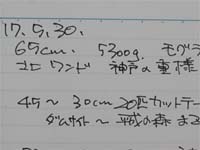 17. 5. 30.
65cm. 5300g. モグラ
ワンド 神戸の重様
45〜30cm 20匹カットテー
ダムサイト〜平成の森 まで